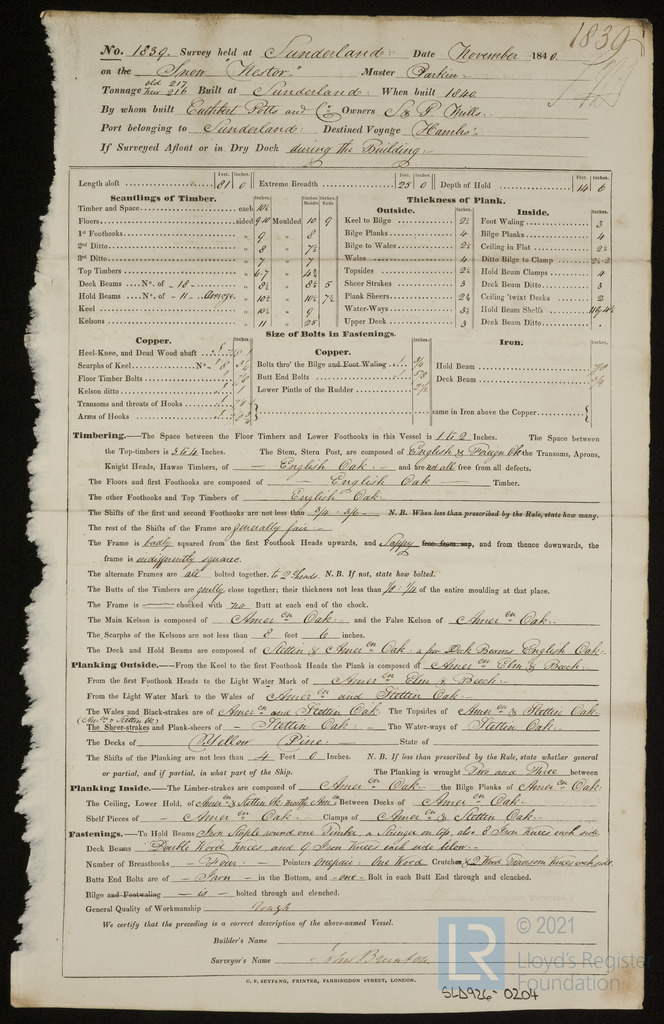 1839
No. 1839. Survey held at Sunderland Date November 1840.
on the Snow "Nestor" Master Parkin
Tonnage old 217 new 216 Built at Sunderland When built 1840
By whom built Cuthbert Potts and Co. Owners S & P Mills
Port belonging to Sunderland Destined Voyage Hambro'
If Surveyed Afloat or in Dry Dock during the Building
Length aloft 81 0 Extreme Breadth 25 0 Depth of Hold 14 6
Feet. Inches. Feet. Inches. Feet. Inches.
Scantlings of Timber. Thickness of Plank.
Outside. Inside.
Timber and Space each
Floors sided 9-10 Moulded 10 9
1st Foothooks 9 8
2nd Ditto 8 7½
3rd Ditto 7 7
Top Timbers 6-7 4½
Deck Beams No. of 18 8½ 8½ 5
Hold Beams No. of 11 Average 10½ 10½ 7½
Keel 10½ 9
Kelsons 11 25
Keel to Bilge 2½
Bilge Planks 4
Bilge to Wales 2½
Wales 4
Topsides 2½
Sheer Strakes 3
Plank Sheers 2½
Water-Ways 3½
Upper Deck 3
Foot Waling 3
Bilge Planks 4
Ceiling in Flat 2½
Ditto Bilge to Clamp 2½-2
Hold Beam Clamps 4
Deck Beam Ditto 3
Ceiling 'twixt Decks 2
Hold Beam Shelfs
Deck Beam Ditto
Size of Bolts in Fastenings.
Copper. Copper. Iron.
Heel-Knee, and Dead Wood abaft
Scarphs of Keel No.
Floor Timber Bolts
Kelson ditto
Transoms and throats of Hooks
Arms of Hooks
Bolts thro' the Bilge and Foot Waling
Butt End Bolts
Lower Pintle of the Rudder 2½
Hold Beam
Deck Beam
same in Iron above the Copper
Timbering.—The Space between the Floor Timbers and Lower Foothooks in this Vessel is 1 to 2 Inches. The Space between
the Top-timbers is 3 to 4 Inches. The Stem, Stern Post, are composed of English & Foreign Ok the Transoms, Aprons,
Knight Heads, Hawse Timbers, of English Oak and are not all free from all defects.
The Floors and first Foothooks are composed of English Oak Timber.
The other Foothooks and Top Timbers of English Oak
The Shifts of the first and second Foothooks are not less than 3/4 : 3/6 N.B. When less than prescribed by the Rule, state how many.
The rest of the Shifts of the Frame are generally fair
The Frame is badly squared from the first Foothook Heads upwards, and Sappy free from sap, and from thence downwards, the
frame is indifferently square
The alternate Frames are all bolted together. to 2d heads. N.B. If not, state how bolted.
The Butts of the Timbers are gen'lly close together; their thickness not less than 1/3 : 1/4 of the entire moulding at that place.
The Frame is chocked with no Butt at each end of the chock.
The Main Kelson is composed of Amer'cn Oak and the False Kelson of Amer'cn Oak
The Scarphs of the Kelsons are not less than 8 feet 6 inches.
The Deck and Hold Beams are composed of Stettin & Amer'cn Oak a few Deck Beams English Oak
Planking Outside.—From the Keel to the first Foothook Heads the Plank is composed of Amer'cn Elm & Beech
From the first Foothook Heads to the Light Water Mark of Amer'cn Elm & Beech
From the Light Water Mark to the Wales of Amer'cn and Stettin Oak
The Wales and Black-strakes are of Amer'cn and Stettin Oak The Topsides of Amer'cn & Stettin Oak
(Amer'n & Stettin Ok)
The Sheer-strakes and Plank-sheers of Stettin Oak The Water-ways of Stettin Oak
The Decks of Yellow Pine State of
The Shifts of the Planking are not less than 4 Feet 0 Inches. N.B. If less than prescribed by the Rule, state whether general
or partial, and if partial, in what part of the Ship. The Planking is wrought Two and Three between
Planking Inside.—The Limber-strakes are composed of Amer'cn Oak the Bilge Planks of Amer'cn Oak
The Ceiling, Lower Hold, of Amer'cn & Stettin Ok mostly Am'cn Between Decks of Amer'cn Oak
Shelf Pieces of Amer'cn Oak Clamps of Amer'cn & Stettin Oak
Fastenings.—To Hold Beams Iron Staple round one Timber, a Stringer on top, also 8 Iron Knees each side
Deck Beams Double Wood Knees, and 9 Iron Knees each side below
Number of Breasthooks Four Pointers one pair One Wood Crutches & 2 Wood Transom Knees each side.
Butts End Bolts are of Iron in the Bottom, and one Bolt in each Butt End through and clenched.
Bilge and Footwaling is bolted through and clenched.
General Quality of Workmanship Rough
We certify that the preceding is a correct description of the above-named Vessel.
Builder's Name
Surveyor's Name John Brunton
C. F. SEYFANG, PRINTER, FARRINGDON STREET, LONDON.
LR © 2021
Lloyd's Register
Foundation
SLD926-0204